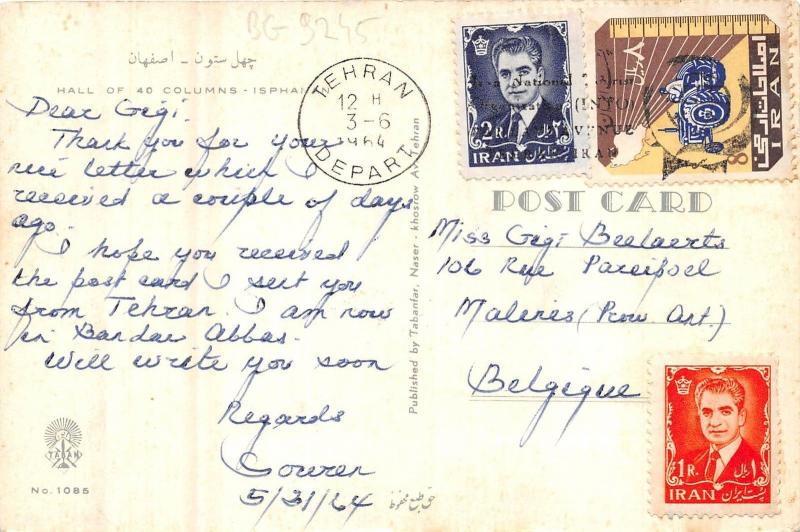 BG 9245
چهل ستون - اصفهان
HALL OF 40 COLUMNS - ISPHAN
Dear Gigi.
Thank you for your
nice letter which I
received a couple of days
ago.
I hope you received
the post card I sent you
from Tehran. I am now
in Bandar Abbas.
Will write you soon
Regards
5/31/64
TABAN
No. 1085
حق طبع محفوظ
Published by Tabanfar, Naser-khosrow Av. Tehran
TEHRAN
12 H
3-6
1964
DEPART
2R. ریال ۲
IRAN پست ایران
National
(INTO)
AVENUE
IRAN
۸ ریال
8 R
اصلاحات ارضی
IRAN
POST CARD
Miss Gigi Beelaerts
106 Rue
Malines (Prov. Ant.)
Belgique
1R. ریال ۱
IRAN پست ایران